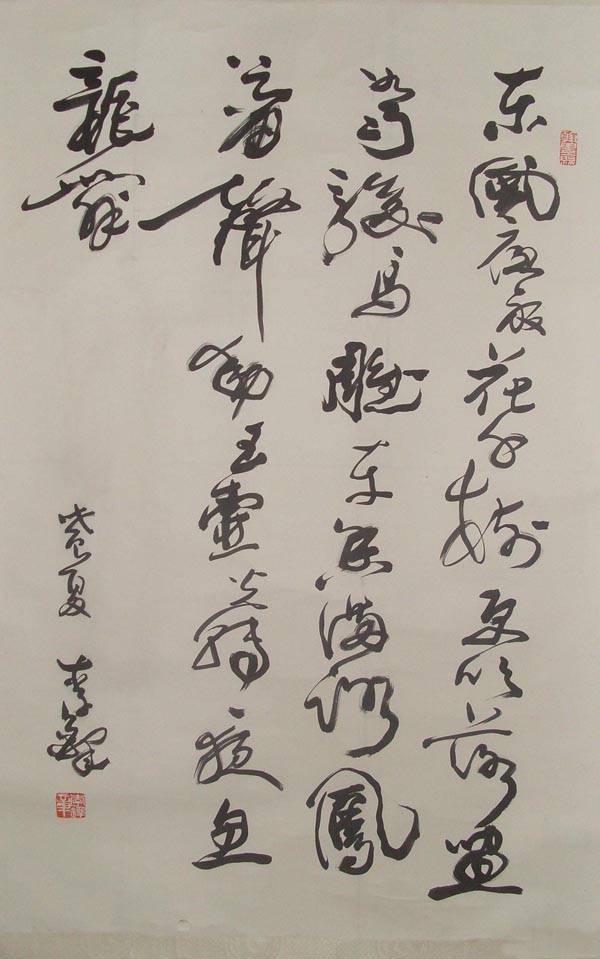 东風夜放花千樹更吹落星
如雨駿馬雕车香满路鳳
簫聲動玉壺光轉夜魚
龍舞
夏 李鐸